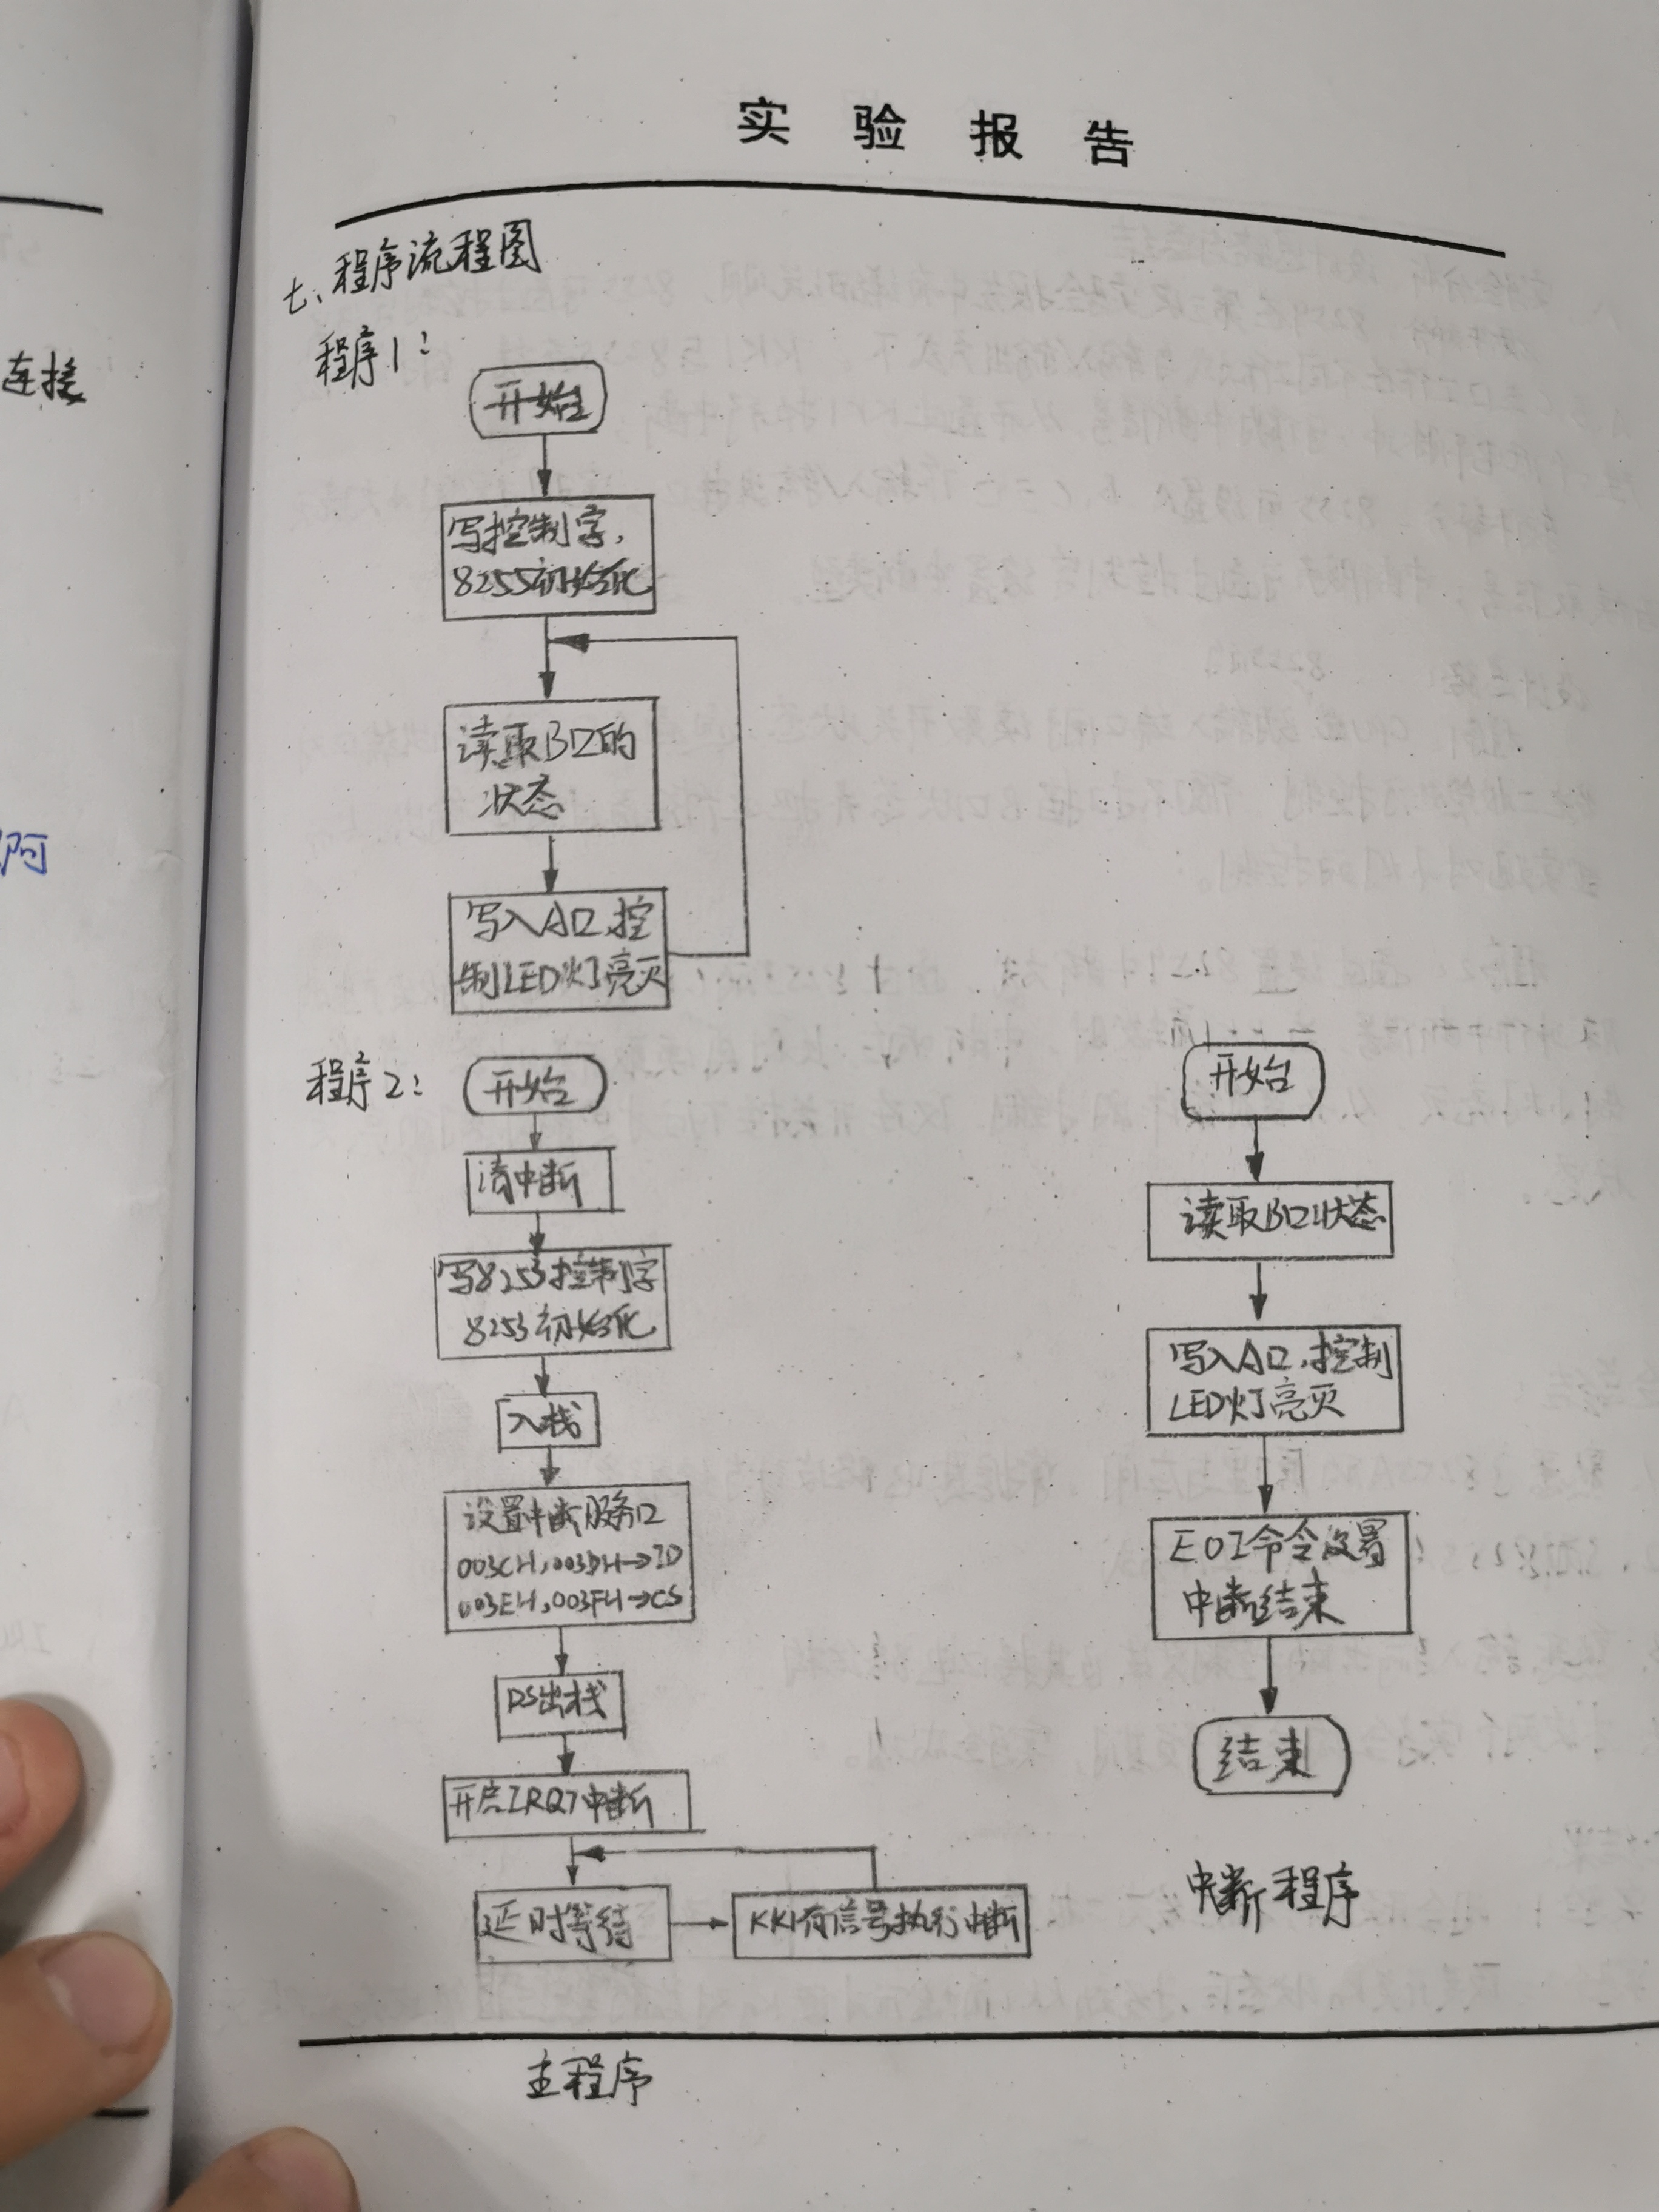 实验报告
七、程序流程图
程序1:
开始
写控制字,
8255初始化
读取B口的
状态
写入A口,控
制LED灯亮灭
程序2:
开始
清中断
写8253控制字
8253初始化
入栈
设置中断服务口
003CH,003DH→ID
003EH,003FH→CS
DS出栈
开启IRQ7中断
延时等待
KK1有信号执行中断
主程序
开始
读取B口状态
写入A口,控制
LED灯亮灭
EOI命令设置
中断结束
结束
中断程序
连接
阿